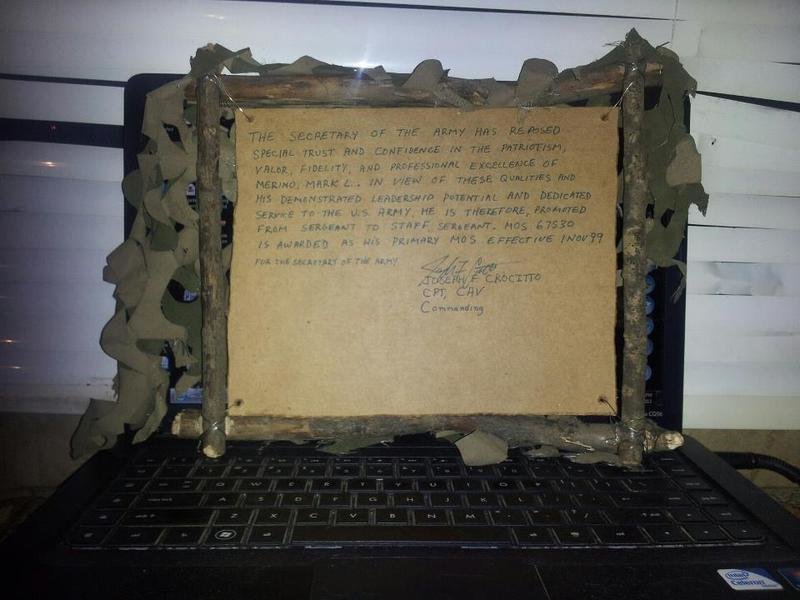 THE SECRETARY OF THE ARMY HAS REPOSED
SPECIAL TRUST AND CONFIDENCE IN THE PATRIOTISM,
VALOR, FIDELITY, AND PROFESSIONAL EXCELLENCE OF
MERINO, MARK L.. IN VIEW OF THESE QUALITIES AND
HIS DEMONSTRATED LEADERSHIP POTENTIAL AND DEDICATED
SERVICE TO THE U.S. ARMY, HE IS THEREFORE, PROMOTED
FROM SERGEANT TO STAFF SERGEANT. MOS 67S30
IS AWARDED AS HIS PRIMARY MOS EFFECTIVE 1NOV99
FOR THE SECRETARY OF THE ARMY
JOSEPH F. CROCITTO
CPT, CAV
Commanding
Q W E R T Y U I O
A S D F G H J K L
Z X C V B N M
intel
Celeron